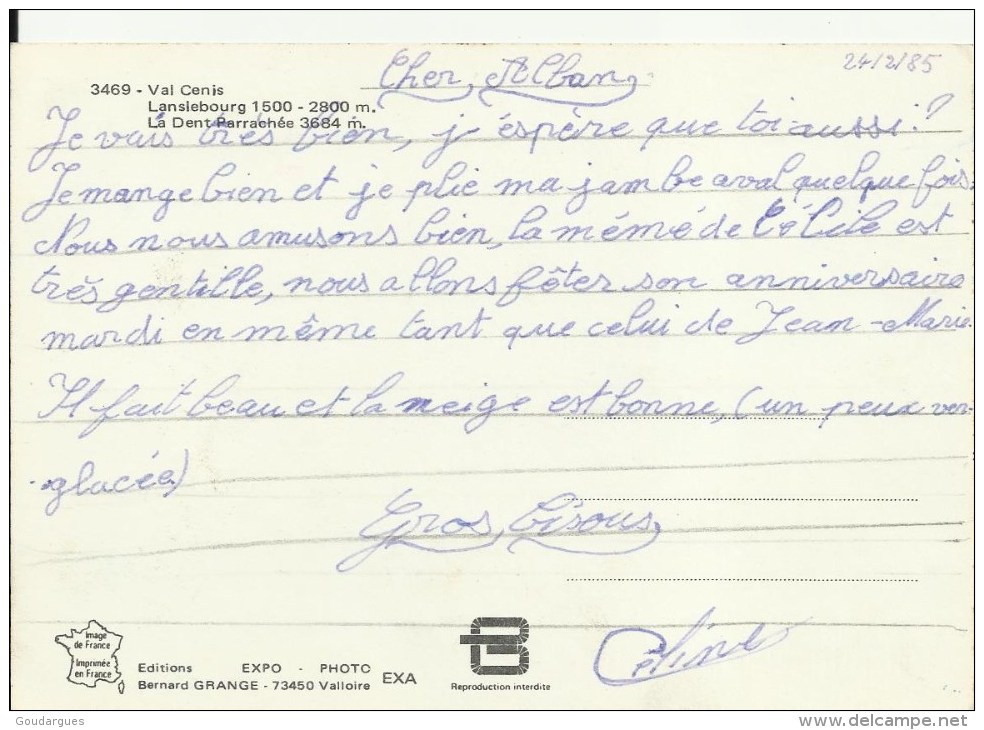 24/2/85
Cher Alban,
3469 - Val Cenis
Lanslebourg 1500 - 2800 m.
La Dent Parrachée 3684 m.
Je vais très bien, j'éspère que toi aussi ?
Je mange bien et je plie ma jambe aval quelque fois.
Nous nous amusons bien, la mémé de Cécile est
très gentille, nous allons fêter son anniversaire
mardi en même tant que celui de Jean-Marie.
Il fait beau et la neige est bonne, (un peux ver-
-glacée)
Gros bisous,
Céline
Image
de France
Imprimée
en France
Editions EXPO - PHOTO EXA
Bernard GRANGE - 73450 Valloire
Reproduction interdite
Goudargues
delcampe.net